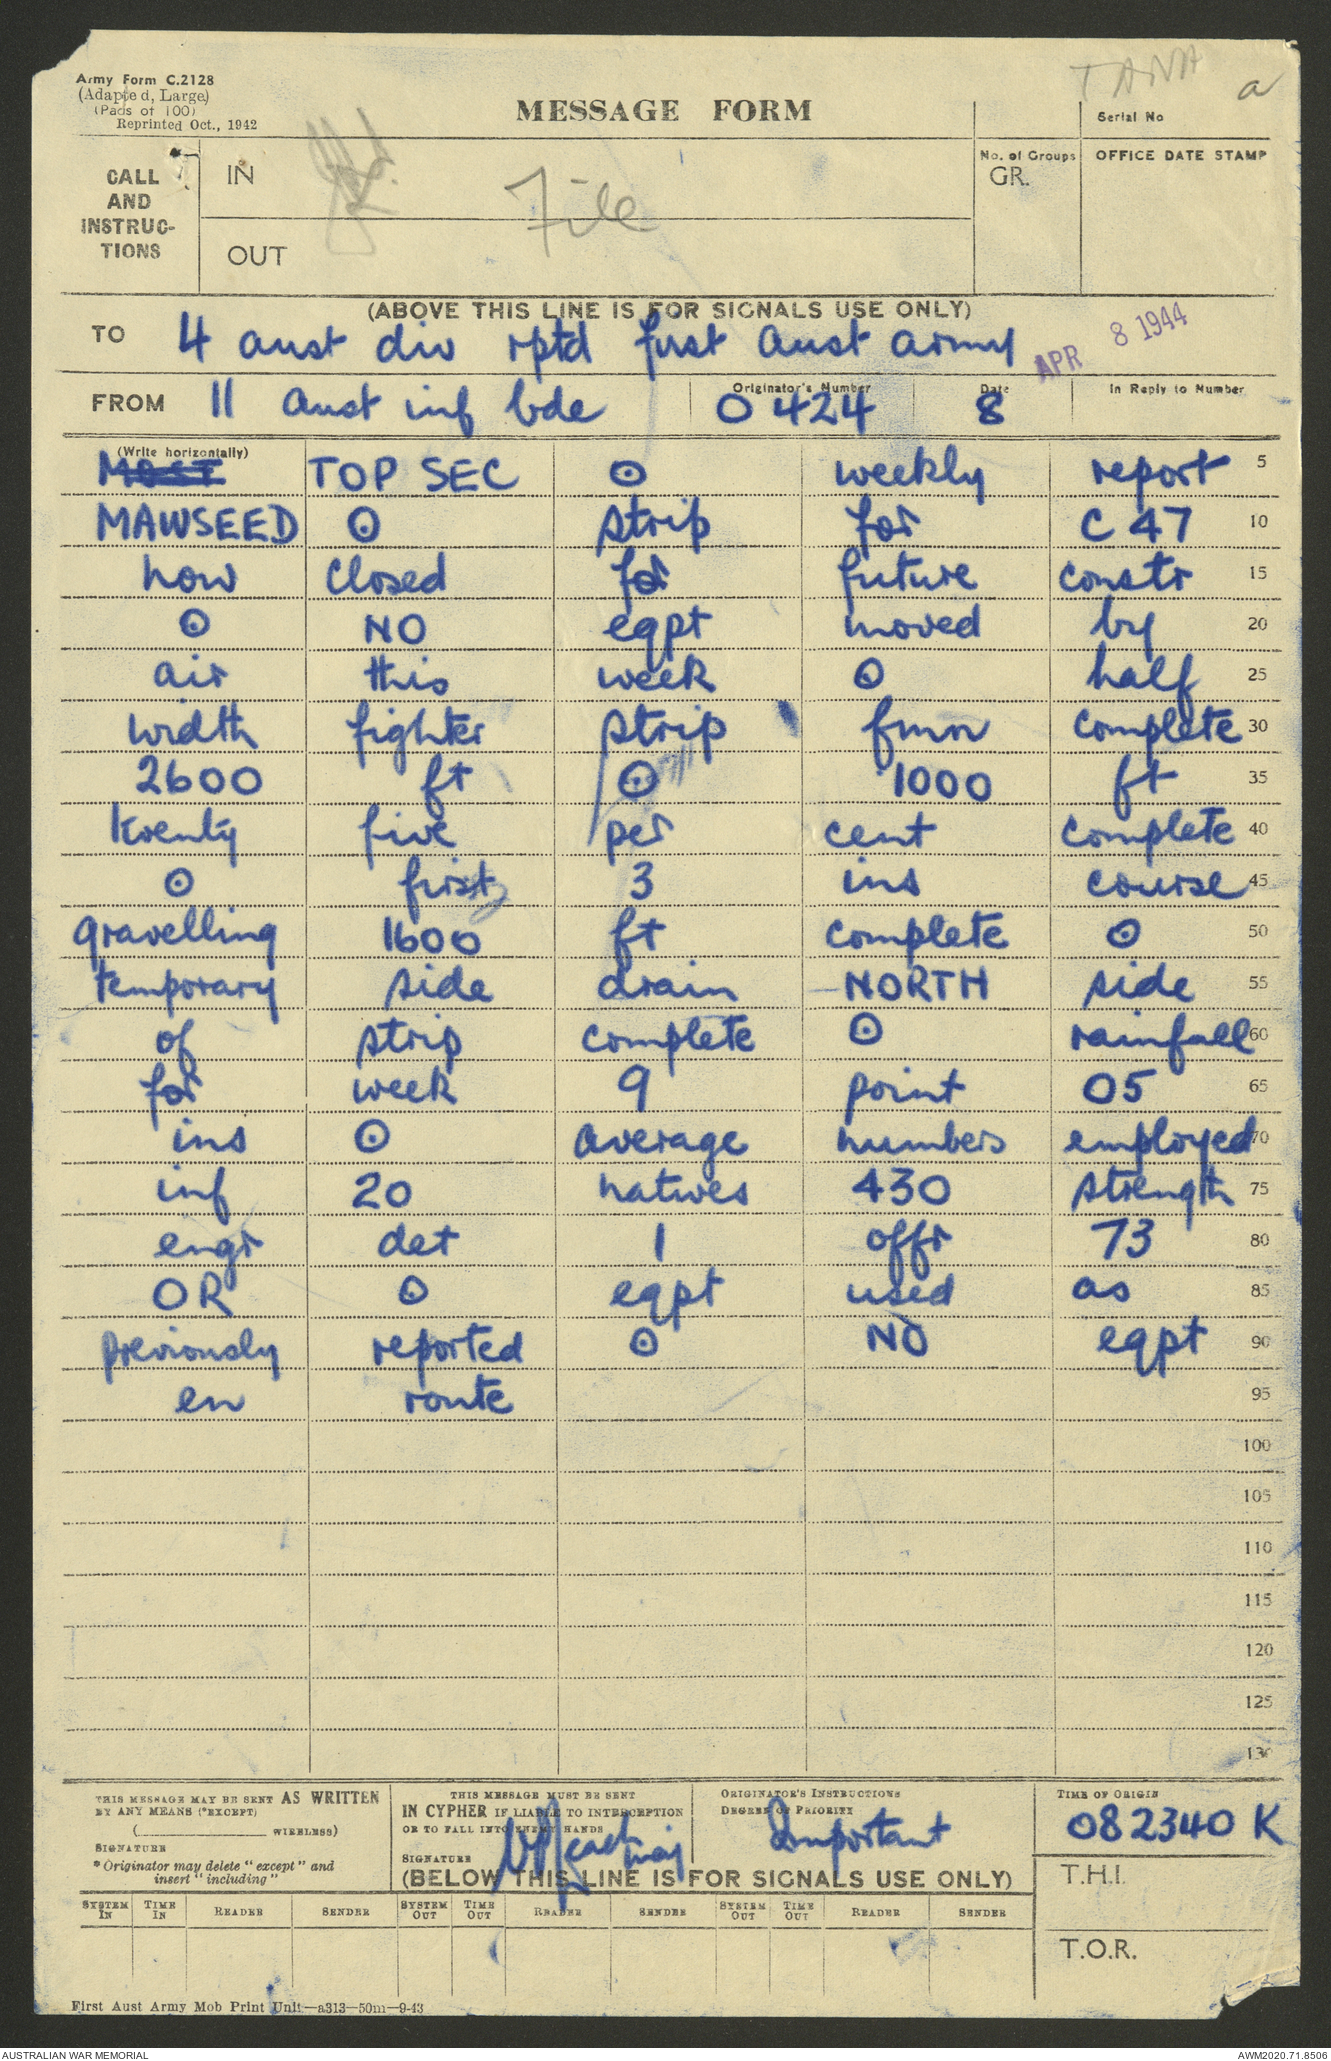 Army Form C.2128
(Adapted, Large)
(Pads of 100)
Reprinted Oct., 1942
MESSAGE FORM
TANA
a
Serial No
CALL AND INSTRUC-TIONS
IN
File
OUT
No. of Groups
GR.
OFFICE DATE STAMP
(ABOVE THIS LINE IS FOR SIGNALS USE ONLY)
TO 4 aust div rptd first aust army
APR 8 1944
FROM 11 aust inf bde Originator's Number O 424 Date 8 In Reply to Number
(Write horizontally)
MOST TOP SEC ⊙ weekly report 5
MAWSEED ⊙ strip for C 47 10
now closed for future constr 15
⊙ NO eqpt moved by 20
air this week ⊙ half 25
width fighter strip fmn complete 30
2600 ft ⊙ 1000 ft 35
twenty five per cent complete 40
⊙ first 3 ins course 45
gravelling 1600 ft complete ⊙ 50
temporary side drain NORTH side 55
of strip complete ⊙ rainfall 60
for week 9 point 05 65
ins ⊙ average numbers employed 70
inf 20 natives 430 strength 75
engr det 1 offr 73 80
OR ⊙ eqpt used as 85
previously reported ⊙ NO eqpt 90
en route 95
100
105
110
115
120
125
130
THIS MESSAGE MAY BE SENT AS WRITTEN
BY ANY MEANS (*EXCEPT)
(__________ WIRELESS)
SIGNATURE
* Originator may delete "except" and
insert "including"
THIS MESSAGE MUST BE SENT
IN CYPHER IF LIABLE TO INTERCEPTION
OR TO FALL INTO ENEMY HANDS
SIGNATURE maj
ORIGINATOR'S INSTRUCTIONS
DEGREE OF PRIORITY
Important
TIME OF ORIGIN
082340 K
T.H.I.
T.O.R.
(BELOW THIS LINE IS FOR SIGNALS USE ONLY)
SYSTEM IN TIME IN READER SENDER SYSTEM OUT TIME OUT READER SENDER SYSTEM OUT TIME OUT READER SENDER
First Aust Army Mob Print Unit—a313—50m—9-43
AUSTRALIAN WAR MEMORIAL
AWM2020.71.8506